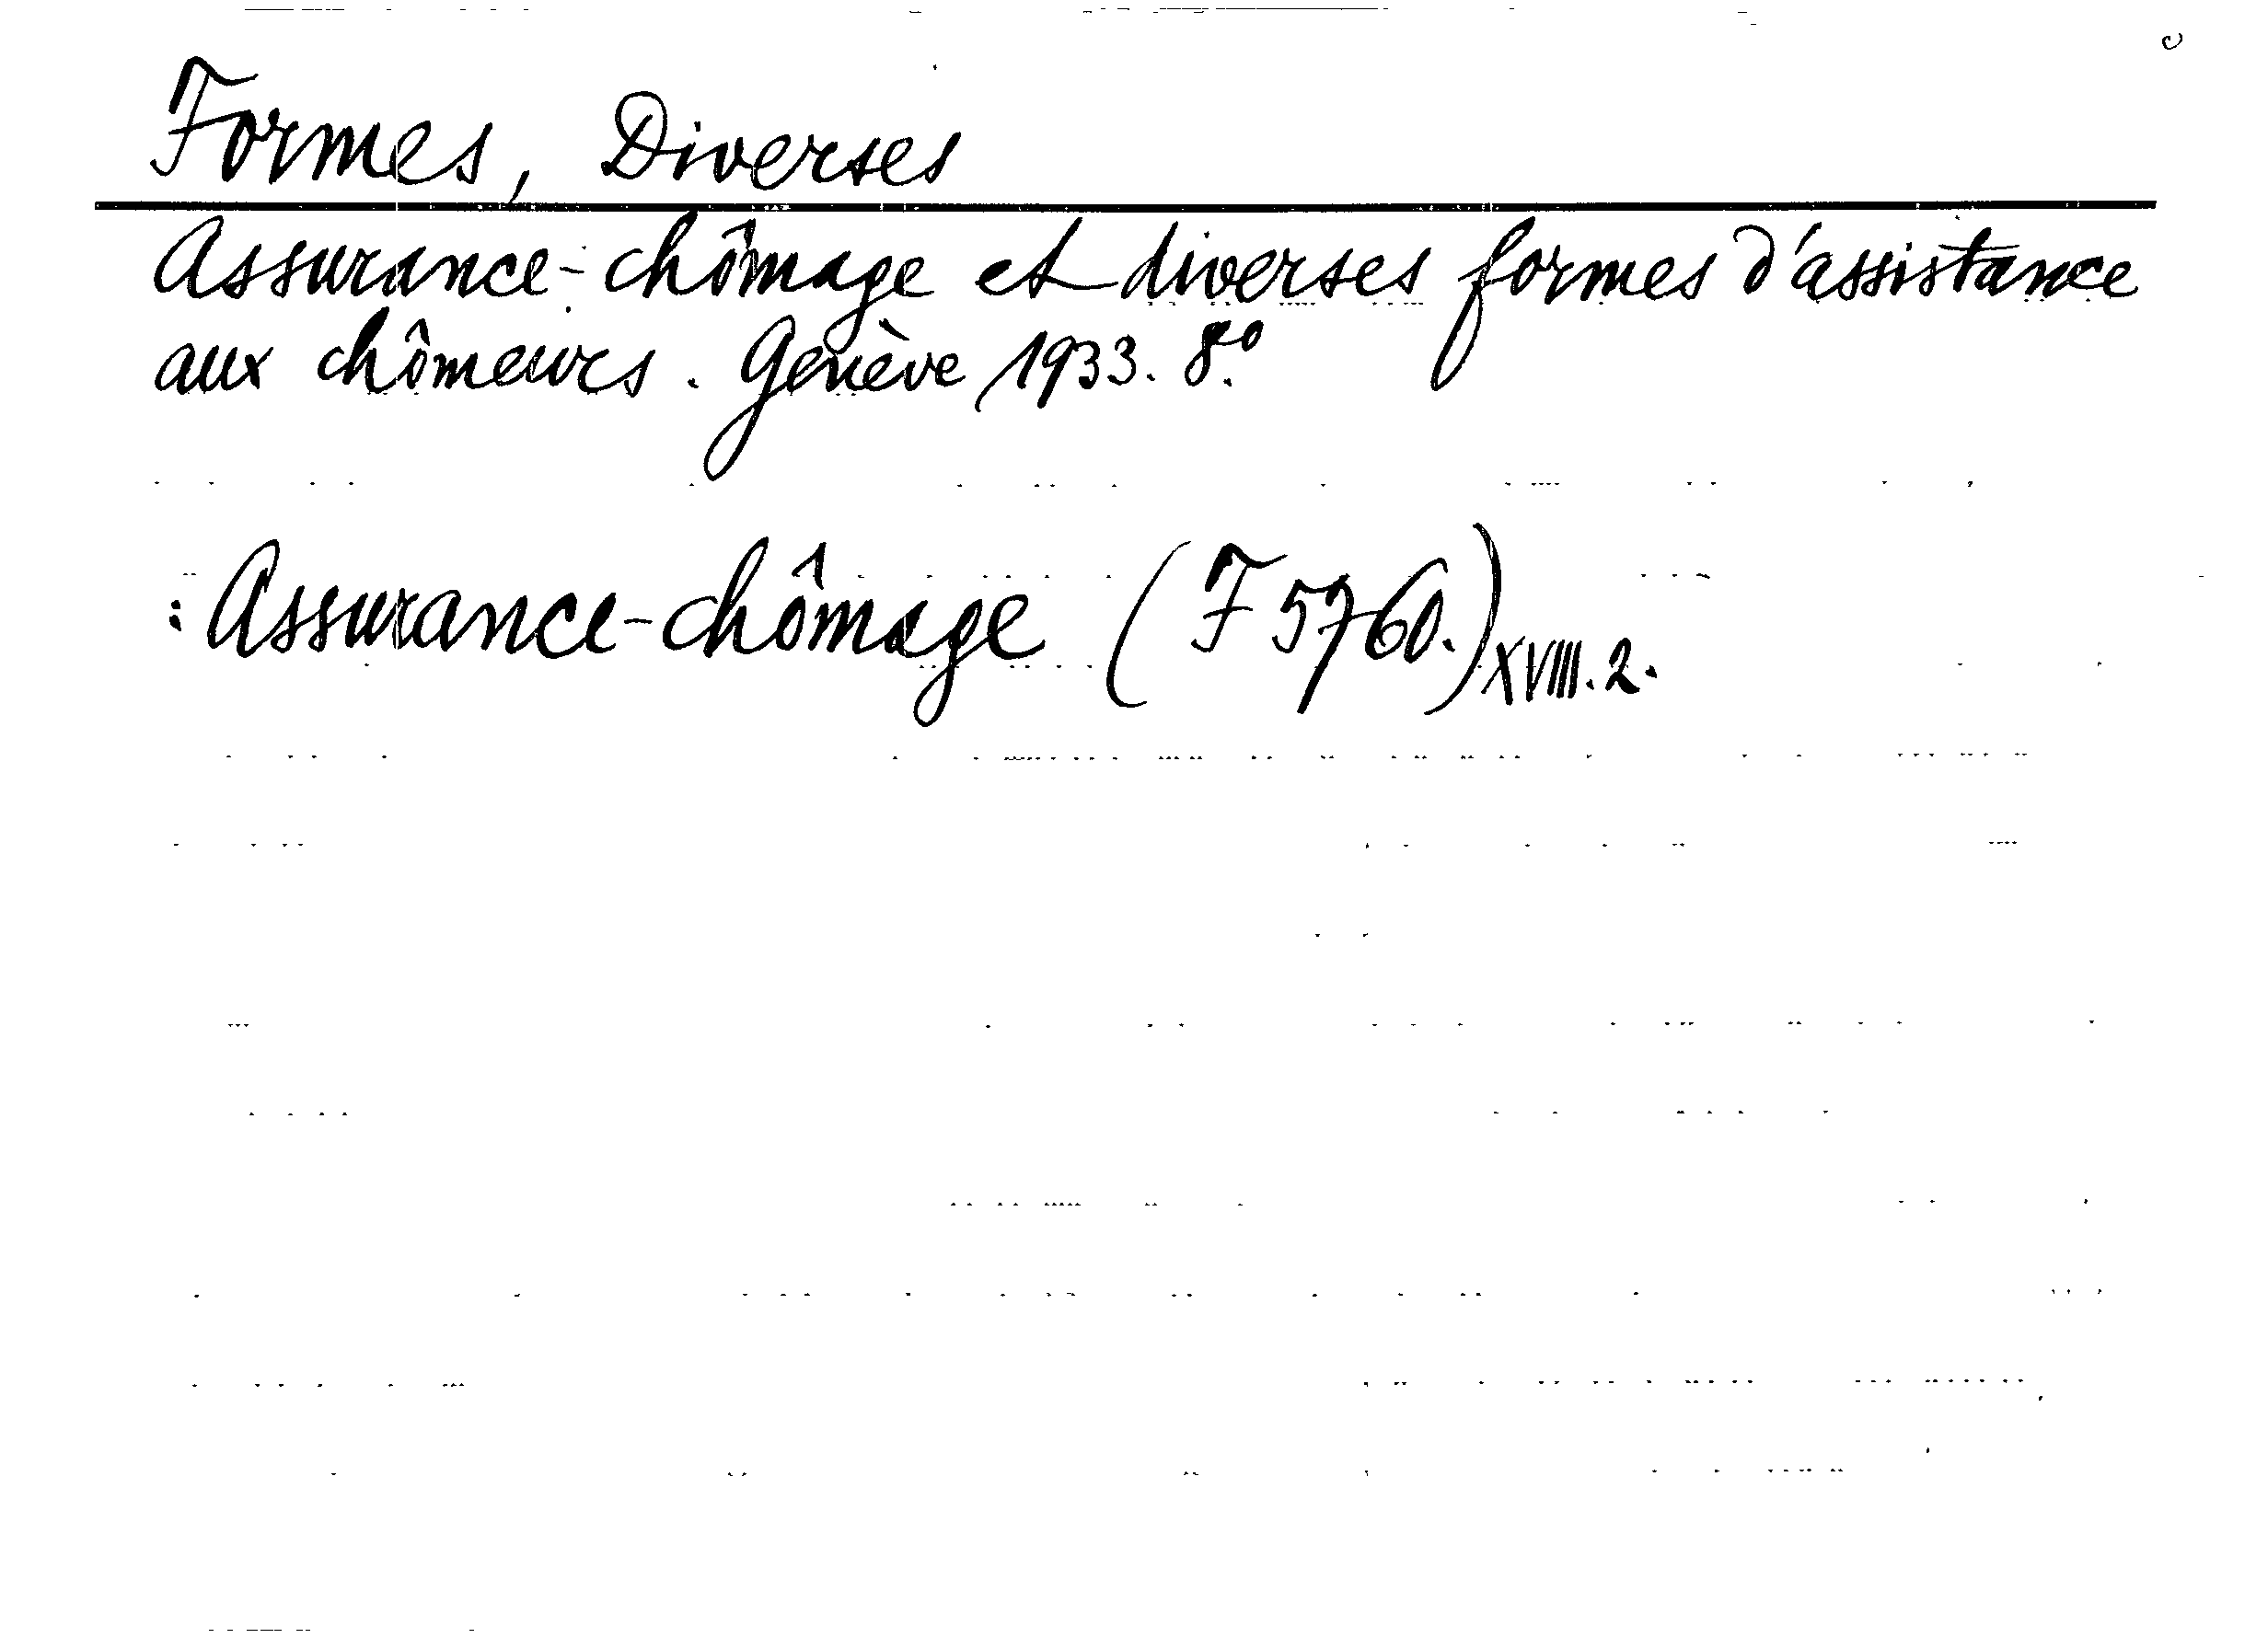 Formes, Diverses
Assurance-chômage et diverses formes d'assistance
aux chômeurs. Genève 1933. 8º.
: Assurance-chômage (F 5760.) XVIII. 2.